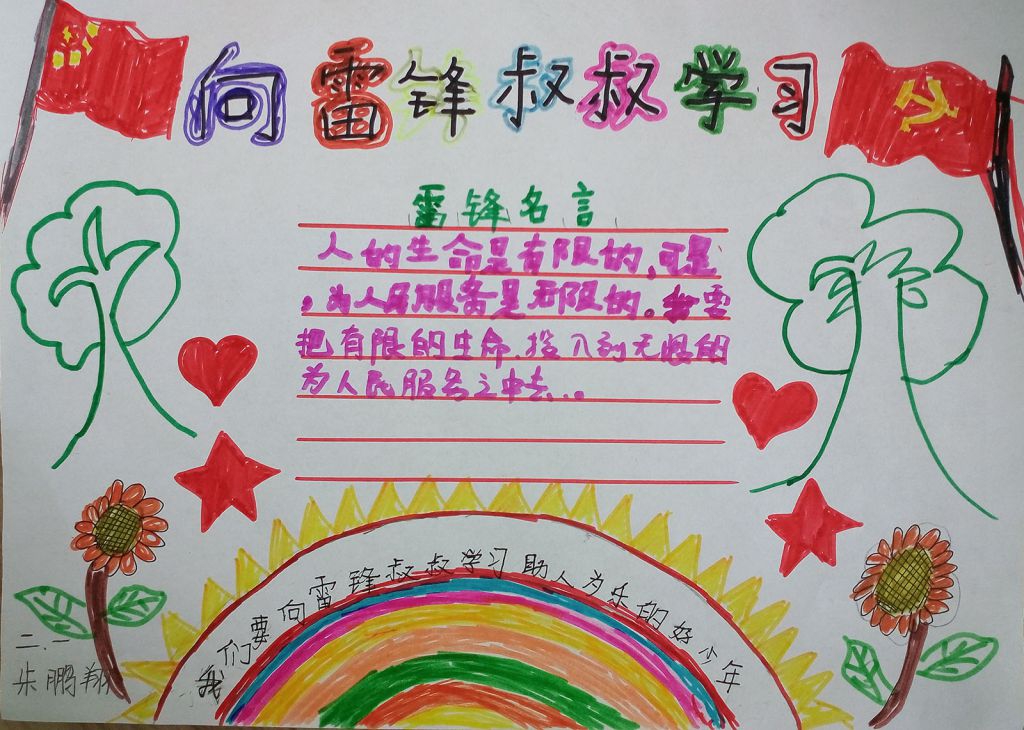 向雷锋叔叔学习
雷锋名言
人的生命是有限的,可是
,为人民服务是无限的。我要
把有限的生命,投入到无限的
为人民服务之中去...。
我们要向雷锋叔叔学习助人为乐的好少年
二、一
朱鹏翔